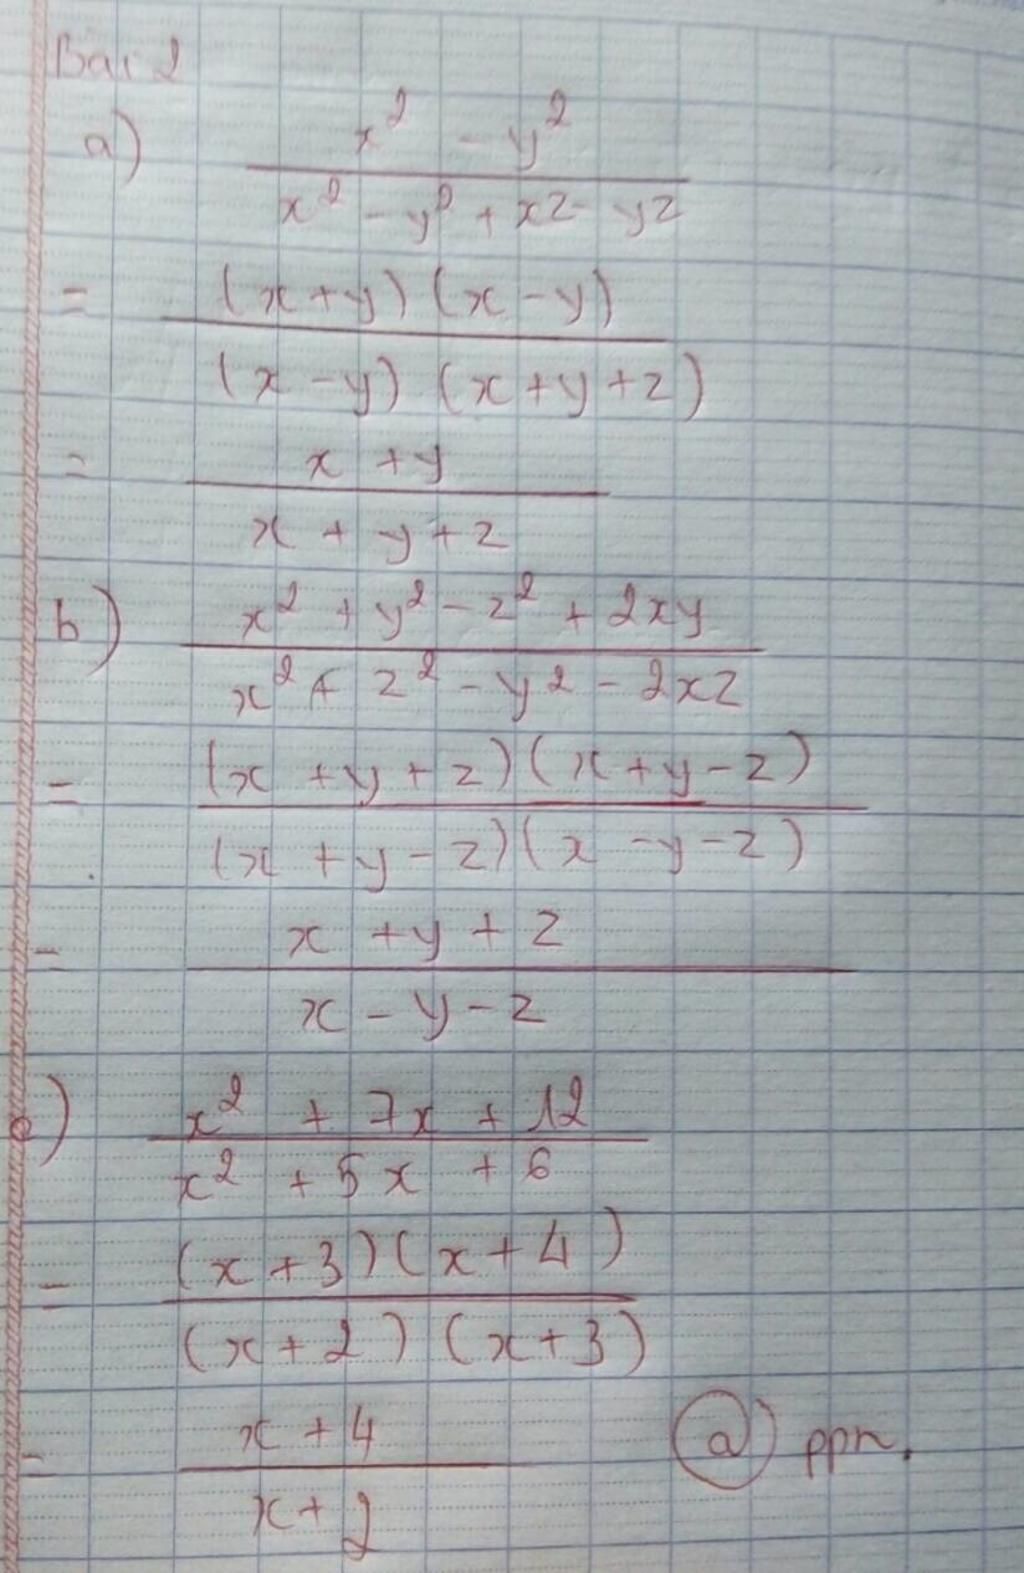 Bài 2
a) \frac{x^2 - y^2}{x^2 - y^2 + xz - yz}
= \frac{(x+y)(x-y)}{(x-y)(x+y+z)}
= \frac{x+y}{x+y+z}
b) \frac{x^2 + y^2 - z^2 + 2xy}{x^2 + z^2 - y^2 - 2xz}
= \frac{(x+y+z)(x+y-z)}{(x+y-z)(x-y-z)}
= \frac{x+y+z}{x-y-z}
c) \frac{x^2 + 7x + 12}{x^2 + 5x + 6}
= \frac{(x+3)(x+4)}{(x+2)(x+3)}
= \frac{x+4}{x+2}
@) ppn.